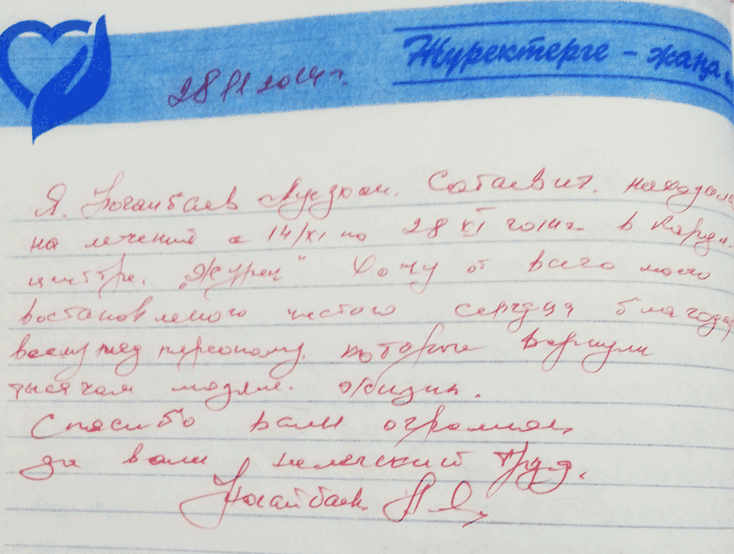 Жүректерге - жаңа
28 11 2014 г.
Я. Ногайбаев Ауезхан. Сатаевич. находил
на лечений с 14/XI по 28 XI 2014г. в Карди-
центре. "Жүрек" Хочу от всего моего
востановленого чистого сердця благодар
всему мед персоналу. которые вернули
тысячам людям. жизни.
Спасибо вам огромное
за ваш нелегкий труд.
Ногайбаев